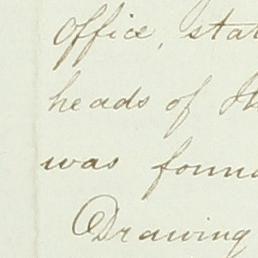 Office, stat
heads of
was foun
Drawing